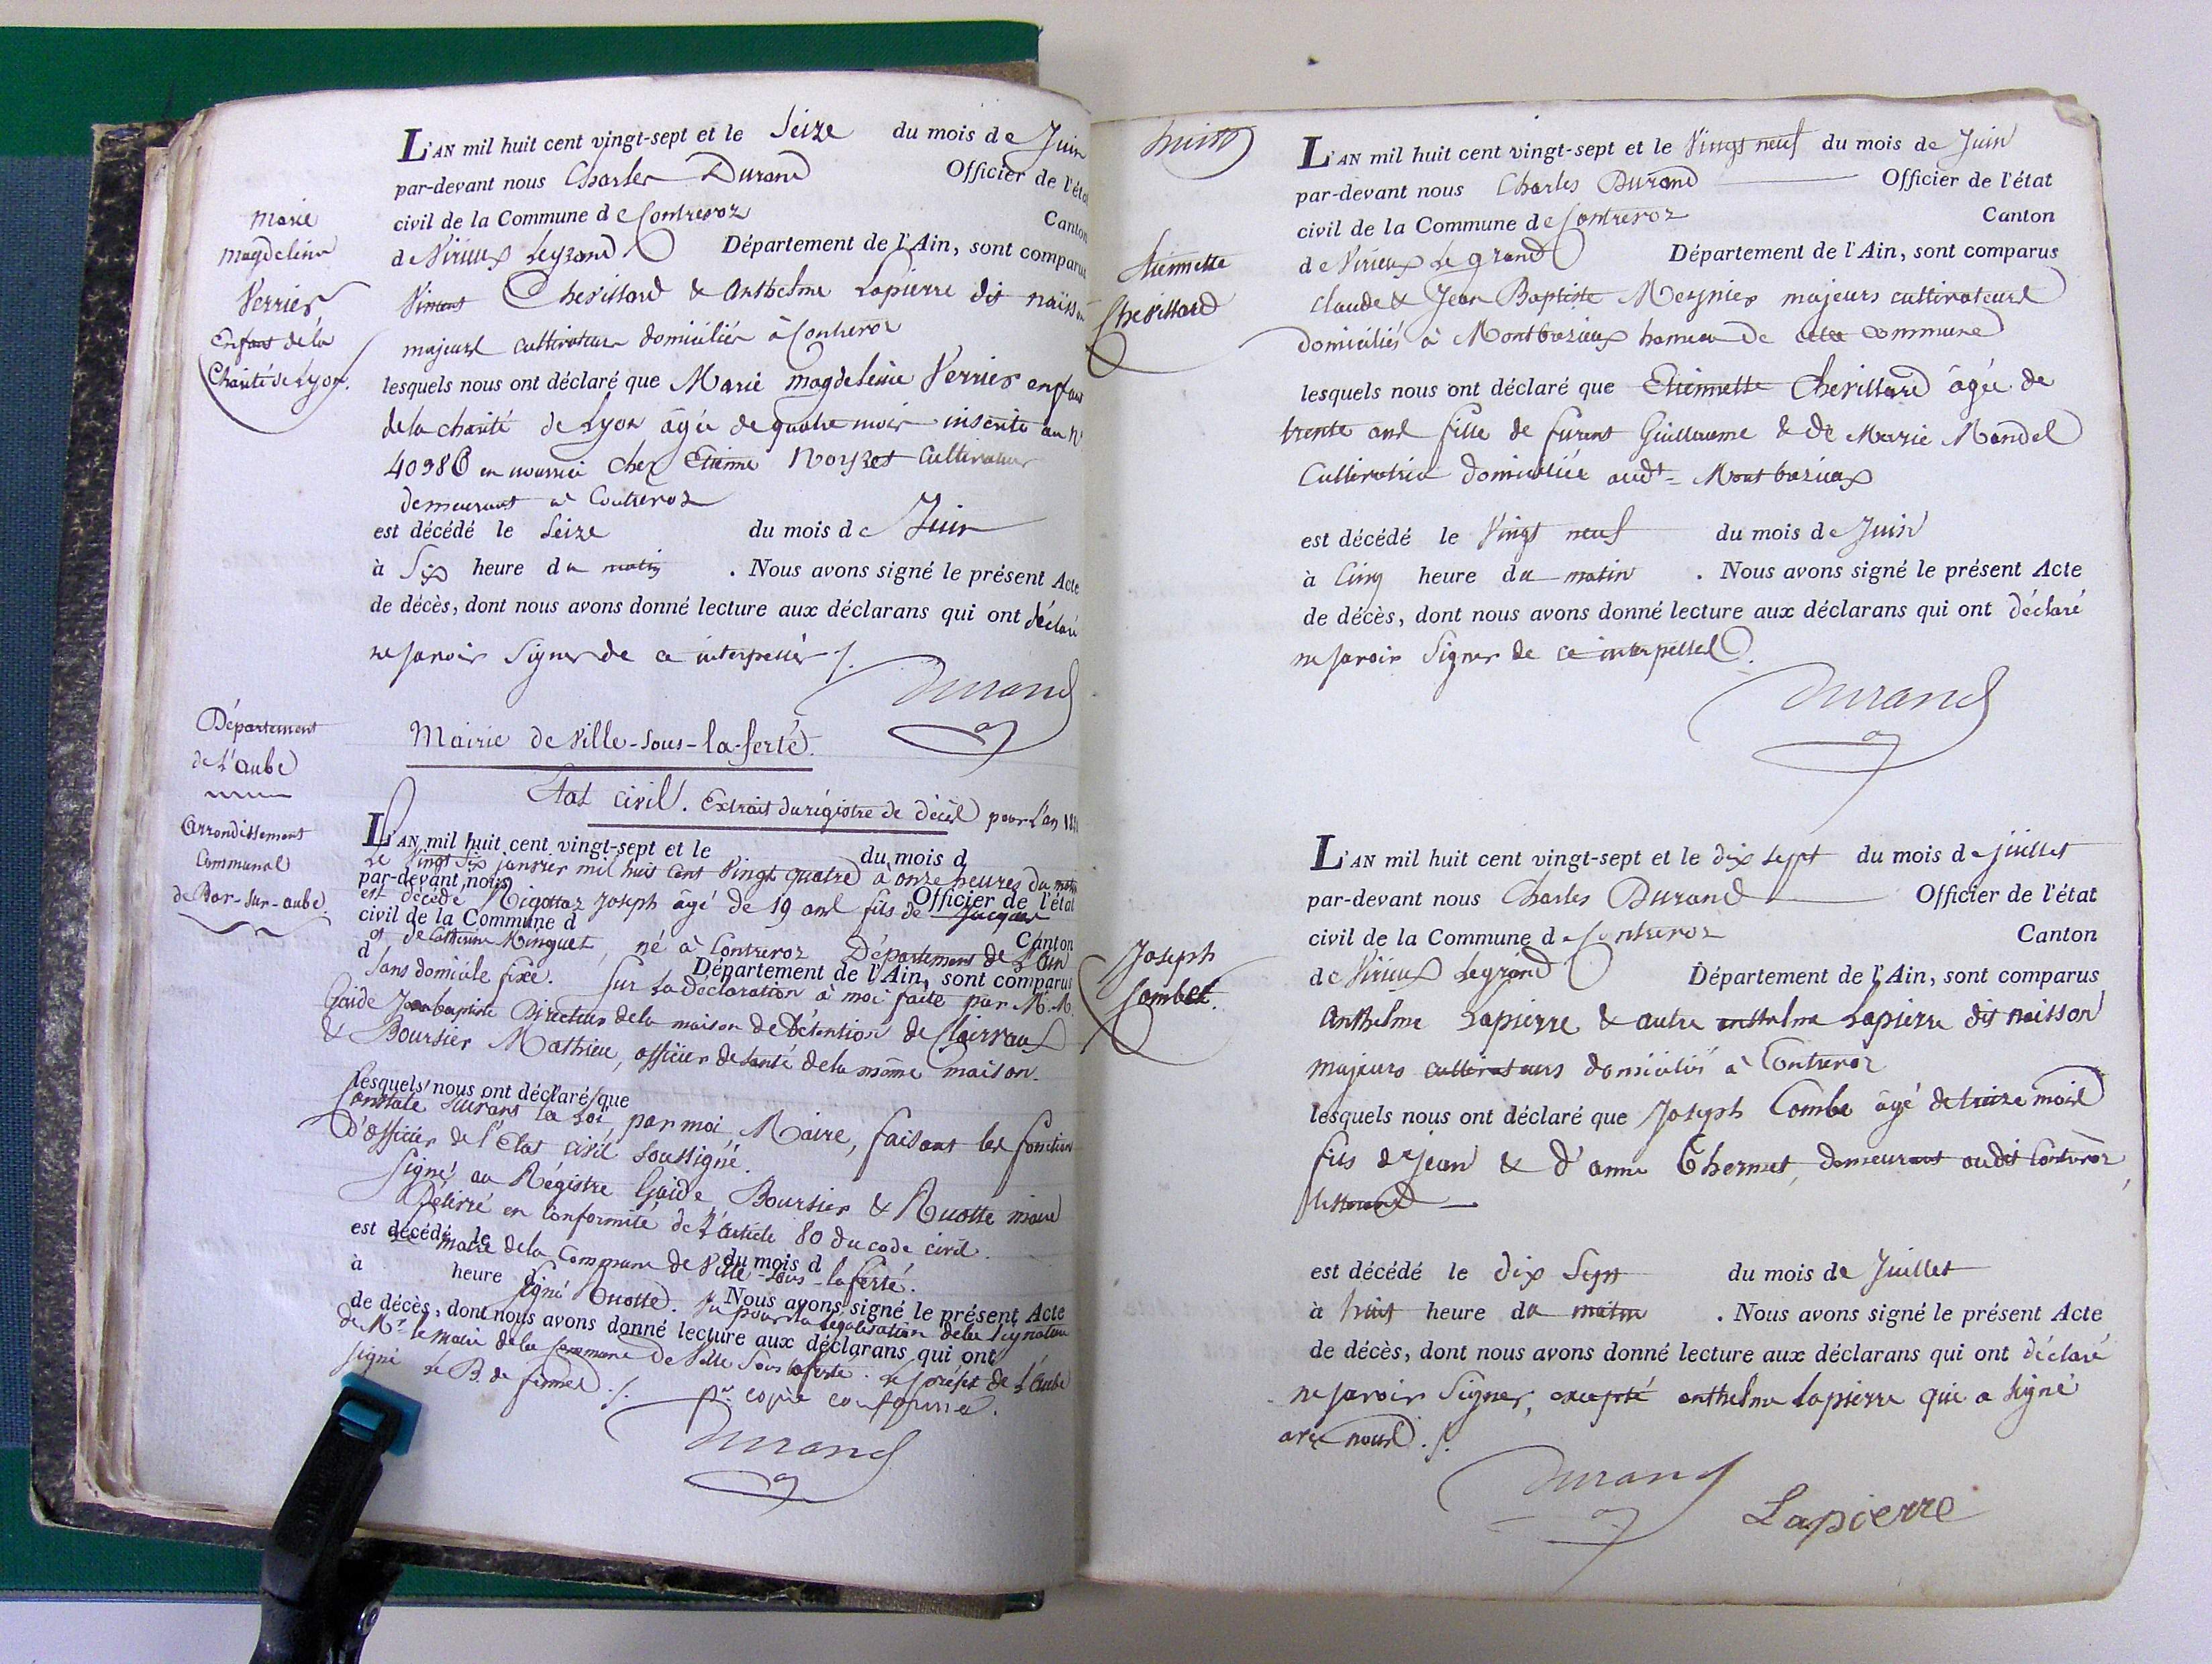 Marie
Magdeleine
Verrier
Enfant de la
Charité de Lyon.
L'AN mil huit cent vingt-sept et le Seize du mois de Juin
par-devant nous Charles Durand Officier de l'état
civil de la Commune de Contrevoz Canton
de Virieux Legrand Département de l'Ain, sont comparus
Vincent Chevillard & Anthelme Lapierre dit naisson
majeurs cultivateurs domiciliés à Contrevoz
lesquels nous ont déclaré que Marie Magdeleine Verrier enfant
de la charité de Lyon âgée de quatre mois inscrite au N°
40986 en nourrice chez Etienne Noyret Cultivateur
demeurant à Contrevoz
est décédé le Seize du mois de Juin
à Six heure du matin . Nous avons signé le présent Acte
de décès, dont nous avons donné lecture aux déclarans qui ont déclaré
ne savoir Signer de ce interpellés ./.
Durand
Département
de L'aube
Arrondissement
Communal
de Bar-sur-aube.
Mairie de Ville-Sous-la-ferté.
Etat civil. Extrait du régistre de décès pour l'an
L'AN mil huit cent vingt-sept et le du mois d
Le Vingt Six janvier mil huit Cent Vingt quatre à onze heures du matin
par-devant nous Officier de l'état
est décédé Rigottaz Joseph âgé de 19 ans fils de Jacques
civil de la Commune d Canton
et de Catherine Minguet, né à Contrevoz Département de L'Ain
d Département de l'Ain, sont comparus
Sans domicile fixe. Sur La Déclaration à moi faite par M.M.
Gaide Jeanbaptiste Directeur de la maison de Détention de Clairvaux
& Boursier Mathieu, officier de Santé de la même maison.
lesquels nous ont déclaré que
Constaté Suivant la Loi, par moi Maire, faisant les fonctions
D'officier de l'Etat civil Soussigné.
Signé au Régistre Gaide Boursier & Ruotte maire
Délivré en Conformité de L'article 80 du code civil.
est décédé le du mois d
Le Maire de la Commune de Ville-Sous-la ferté.
à heure d Nous avons signé le présent Acte
Signé Ruotte. Vu pour la Légalisation de la Signature
de décès, dont nous avons donné lecture aux déclarans qui ont
de Mr le Maire de la Commune de Ville Sous laferté. Le préfet de L'Aube
Signé
pr copie conforme.
Durand
huit
Etiennette
Chevillard
L'AN mil huit cent vingt-sept et le Vingt neuf du mois de Juin
par-devant nous Charles Durand Officier de l'état
civil de la Commune de Contrevoz Canton
de Virieux Le grand Département de l'Ain, sont comparus
Claude & Jean Baptiste Meynier majeurs cultivateurs
domiciliés à Montbrezieux hameau de cette commune
lesquels nous ont déclaré que Etiennette Chevillard âgée de
trente ans fille de furent Guillaume & de Marie Mandel
Cultivatrice domiciliée audt Montbrezieux
est décédé le Vingt neuf du mois de Juin
à Cinq heure du matin . Nous avons signé le présent Acte
de décès, dont nous avons donné lecture aux déclarans qui ont déclaré
ne savoir Signer de ce interpellés.
Durand
Joseph
Combet.
L'AN mil huit cent vingt-sept et le dix Sept du mois de juillet
par-devant nous Charles Durand Officier de l'état
civil de la Commune de Contrevoz Canton
de Virieux Legrand Département de l'Ain, sont comparus
Anthelme Lapierre & autre anthelme Lapierre dit naisson
majeurs cultivateurs domiciliés à Contrevoz
lesquels nous ont déclaré que Joseph Combe âgé de treize mois
fils de Jean & d'anne Thermet, demeurant audit Contrevoz,
est décédé le dix Sept du mois de Juillet
à huit heure du matin . Nous avons signé le présent Acte
de décès, dont nous avons donné lecture aux déclarans qui ont déclaré
ne savoir Signer, excepté anthelme Lapierre qui a signé
avec nous ./.
Durand
Lapierre